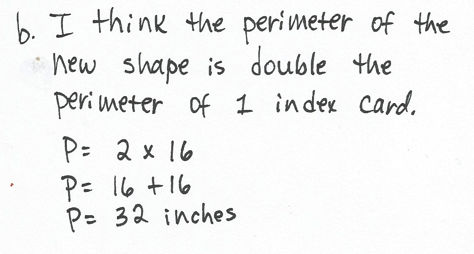 b. I think the perimeter of the
new shape is double the
perimeter of 1 index card.
P= 2 x 16
P= 16 +16
P= 32 inches